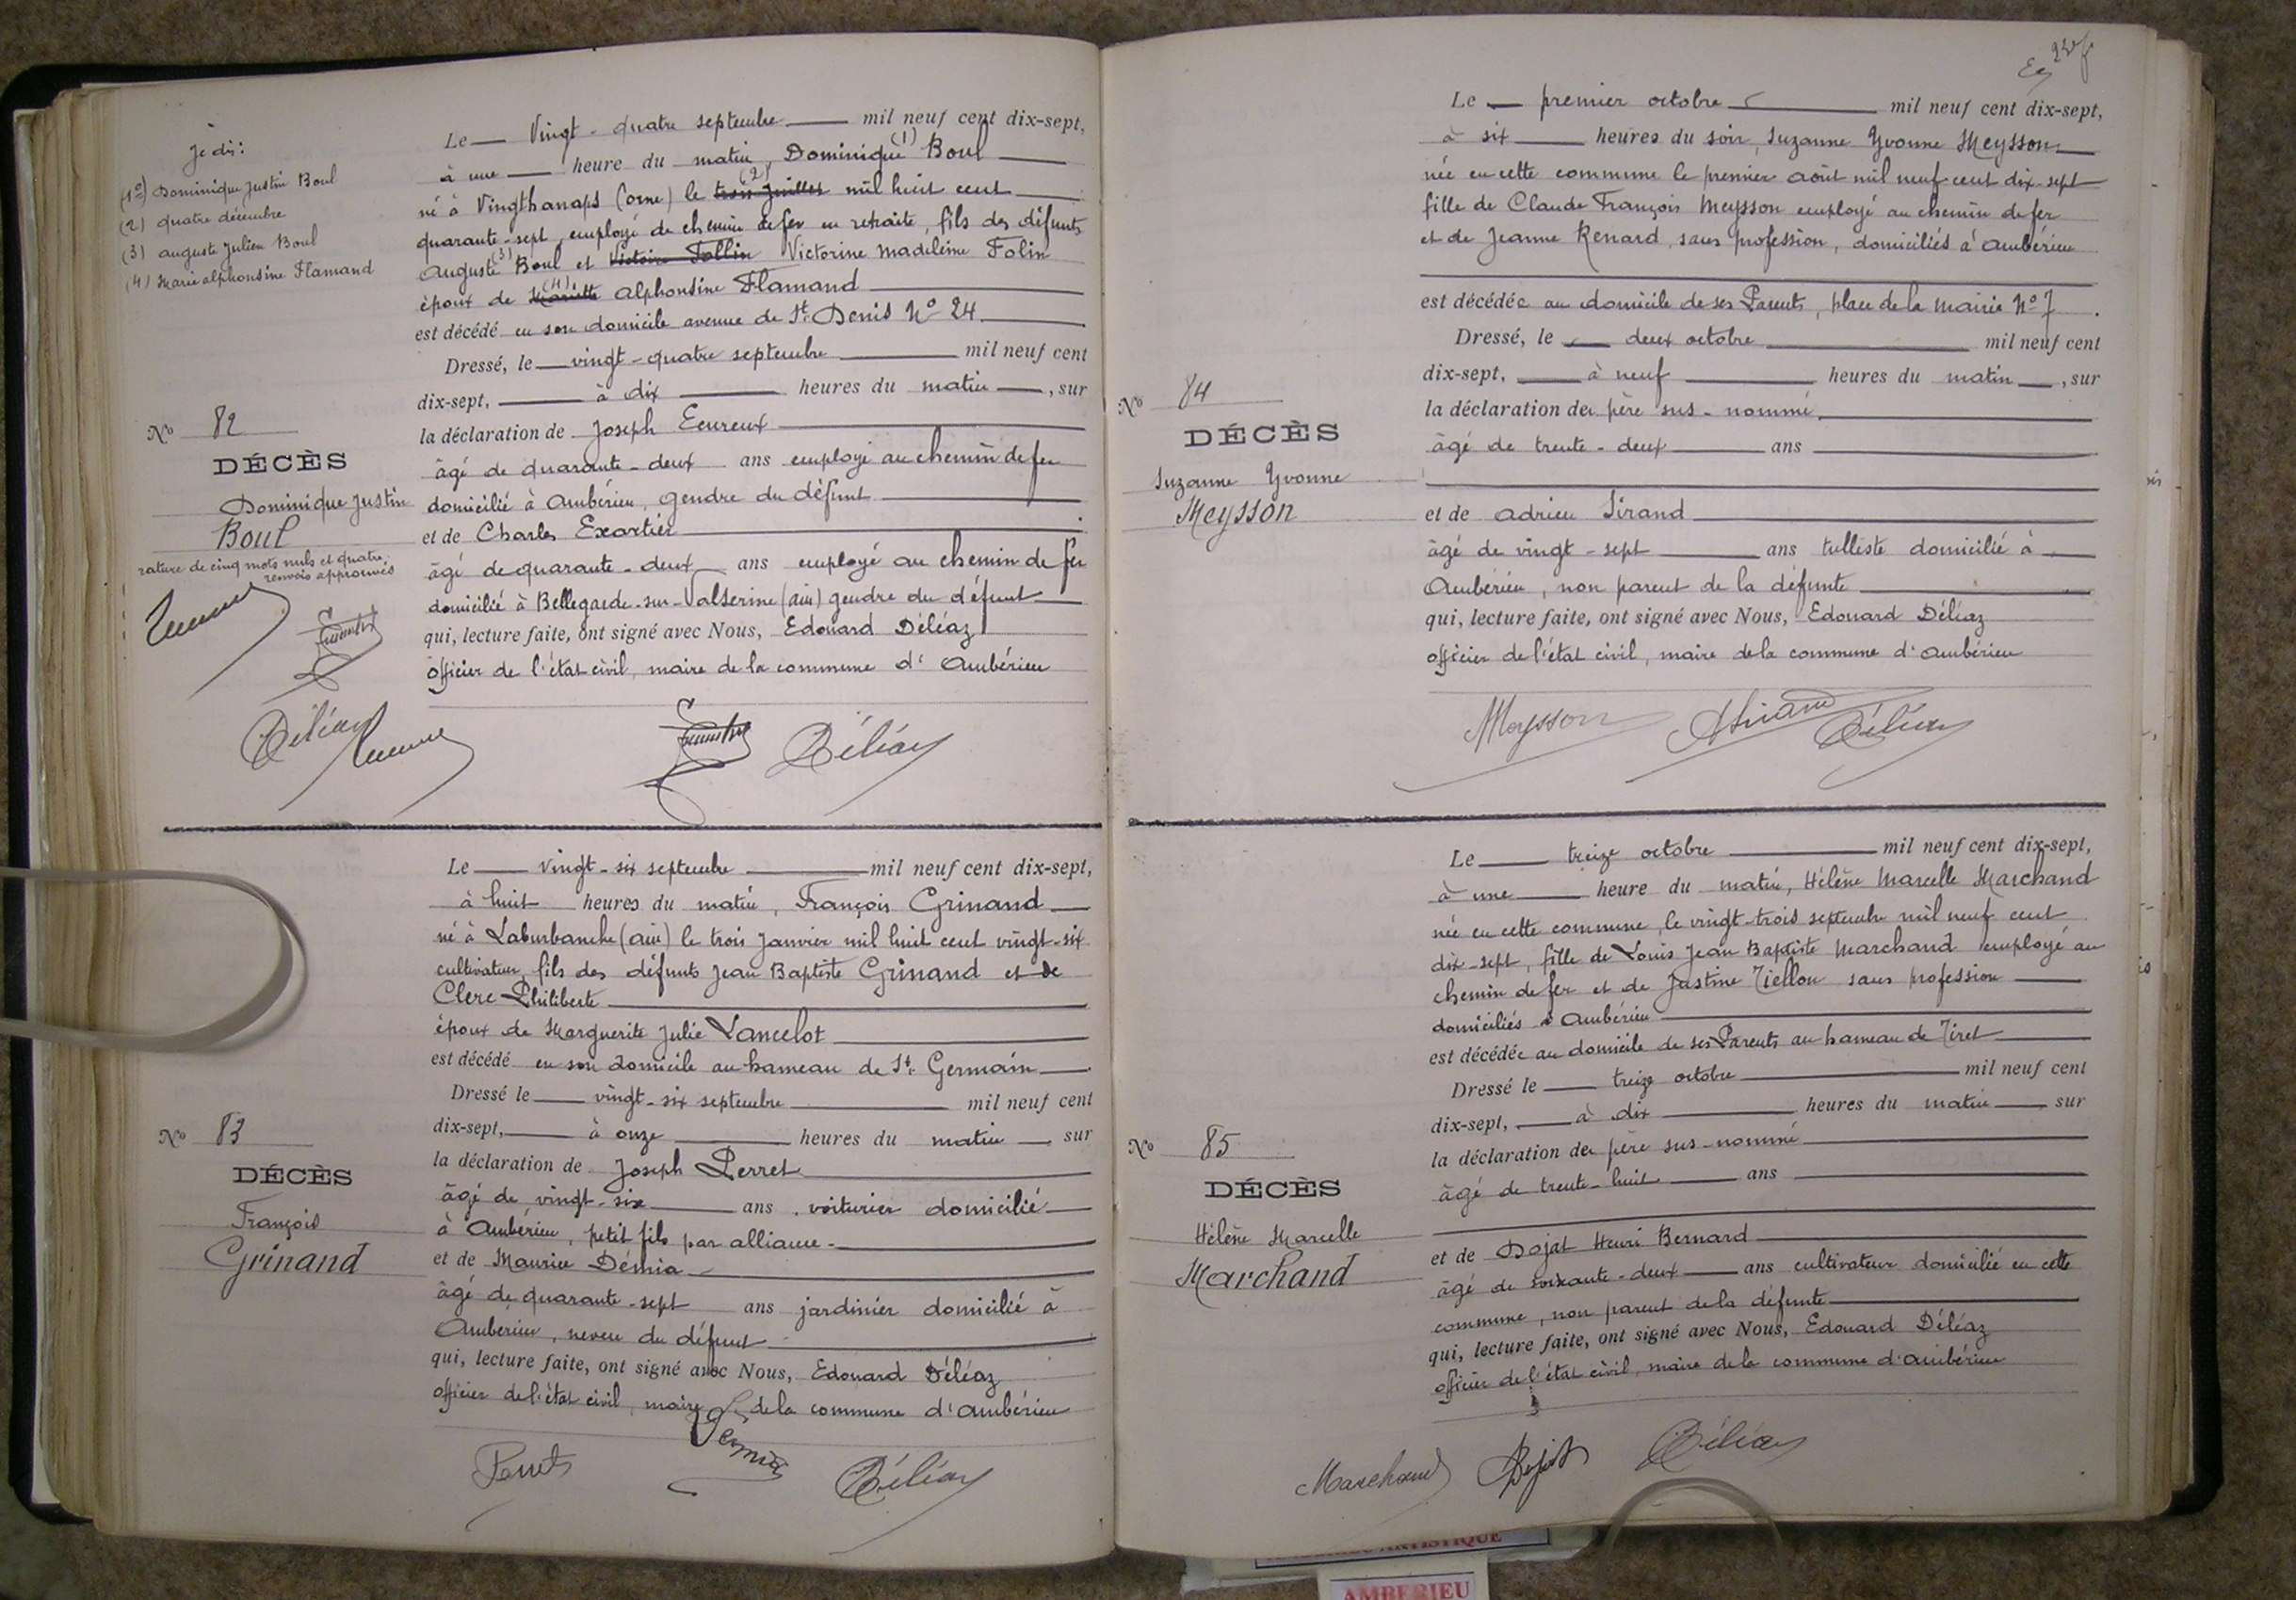 Je dis:
(1º) Dominique Justin Boul
(2) quatre décembre
(3) auguste Julien Boul
(4) Marie alphonsine Flamand
Nº 82
DÉCÈS
Dominique Justin
Boul
rature de cinq mots nuls et quatre
renvois approuvés
Déléaz
Le vingt-quatre septembre mil neuf cent dix-sept,
à une heure du matin, Dominique (1) Boul
né à Vingthanaps (orne) le (2) trois Juillet mil huit cent
quarante-sept, employé de chemin de fer en retraite, fils des défunts
Auguste (3) Boul et Victoire Follin Victorine Madeleine Folin
époux de (4) Mariette alphonsine Flamand
est décédé en son domicile avenue de St. Denis Nº 24
Dressé, le vingt-quatre septembre mil neuf cent
dix-sept, à dix heures du matin, sur
la déclaration de Joseph Ecureux
âgé de quarante-deux ans employé au chemin de fer
domicilié à Ambérieu, gendre du défunt
et de Charles Exartier
âgé de quarante-deux ans employé au chemin de fer
domicilié à Bellegarde-sur-Valserine (ain) gendre du défunt
qui, lecture faite, ont signé avec Nous, Edouard Déléaz
officier de l'état civil, maire de la commune d'Ambérieu
Déléaz
Nº 83
DÉCÈS
François
Grinand
Le vingt-six septembre mil neuf cent dix-sept,
à huit heures du matin, François Grinand
né à Laburbanche (ain) le trois janvier mil huit cent vingt-six
cultivateur, fils des défunts Jean Baptiste Grinand et de
Clerc Philiberte
époux de Marguerite Julie Lancelot
est décédé en son domicile au hameau de St. Germain
Dressé le vingt-six septembre mil neuf cent
dix-sept, à onze heures du matin, sur
la déclaration de Joseph Perret
âgé de vingt-six ans, voiturier domicilié
à Ambérieu, petit fils par alliance
et de Maurice Démia
âgé de quarante-sept ans jardinier domicilié à
Ambérieu, neveu du défunt
qui, lecture faite, ont signé avec Nous, Edouard Déléaz
officier de l'état civil, maire de la commune d'Ambérieu
Perret Demia Déléaz
Nº 84
DÉCÈS
Suzanne Yvonne
Meysson
Le premier octobre mil neuf cent dix-sept,
à six heures du soir, Suzanne Yvonne Meysson
née en cette commune le premier août mil neuf cent dix-sept
fille de Claude François Meysson employé au chemin de fer
et de Jeanne Renard, sans profession, domiciliés à Ambérieu
est décédée au domicile de ses Parents, place de la Mairie Nº 7.
Dressé, le deux octobre mil neuf cent
dix-sept, à neuf heures du matin, sur
la déclaration du père sus-nommé
âgé de trente-deux ans
et de Adrien Sirand
âgé de vingt-sept ans tulliste domicilié à
Ambérieu, non parent de la défunte
qui, lecture faite, ont signé avec Nous, Edouard Déléaz
officier de l'état civil, maire de la commune d'Ambérieu
Meysson ASirand Déléaz
Nº 85
DÉCÈS
Hélène Marcelle
Marchand
Le treize octobre mil neuf cent dix-sept,
à une heure du matin, Hélène Marcelle Marchand
née en cette commune, le vingt-trois septembre mil neuf cent
dix-sept, fille de Louis Jean Baptiste Marchand employé au
chemin de fer et de Justine Tiellou sans profession
domiciliés à Ambérieu
est décédée au domicile de ses Parents au hameau de Tiret
Dressé le treize octobre mil neuf cent
dix-sept, à dix heures du matin, sur
la déclaration du père sus-nommé
âgé de trente-huit ans
et de Dojat Henri Bernard
âgé de soixante-deux ans cultivateur domicilié en cette
commune, non parent de la défunte
qui, lecture faite, ont signé avec Nous, Edouard Déléaz
officier de l'état civil, maire de la commune d'Ambérieu
Marchand Dojat Déléaz
ARTISTIQUE
AMBERIEU